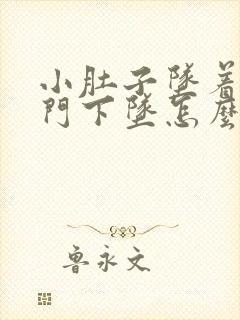 小肚子墜着
門下墜怎麼
魯永文